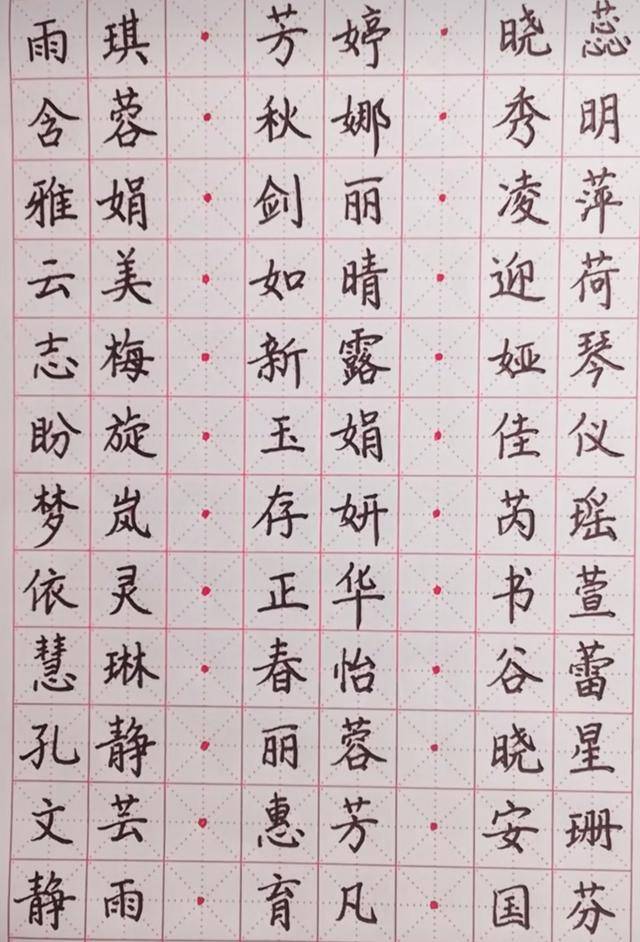 雨琪·芳婷·晓蕊
含蓉·秋娜·秀明
雅娟·剑丽·凌萍
云美·如晴·迎荷
志梅·新露·娅琴
盼旋·玉娟·佳仪
梦岚·存妍·芮瑶
依灵·正华·书萱
慧琳·春怡·谷蕾
孔静·丽蓉·晓星
文芸·惠芳·安珊
静雨·育凡·国芬